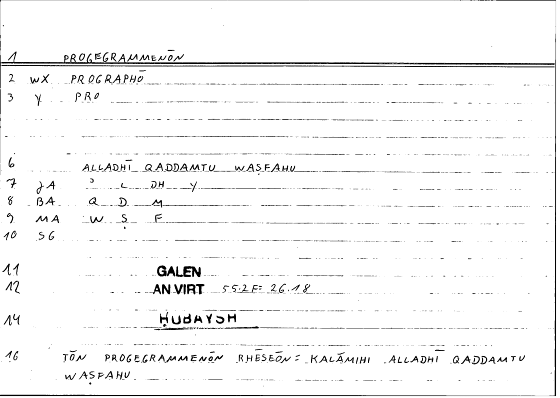 1 PROGEGRAMMENŌN
2 WX PROGRAPHŌ
3 Y PRO
6 ALLADHĪ QADDAMTU WAṢFAHU
7 JA ʾ L DH Y
8 BA Q D M
9 MA W Ṣ F
10 SG
11 GALEN
12 AN VIRT 55.2F = 26.18
14 ḤUBAYSH
16 TŌN PROGEGRAMMENŌN RHĒSEŌN = KALĀMIHI ALLADHĪ QADDAMTU
WAṢFAHU